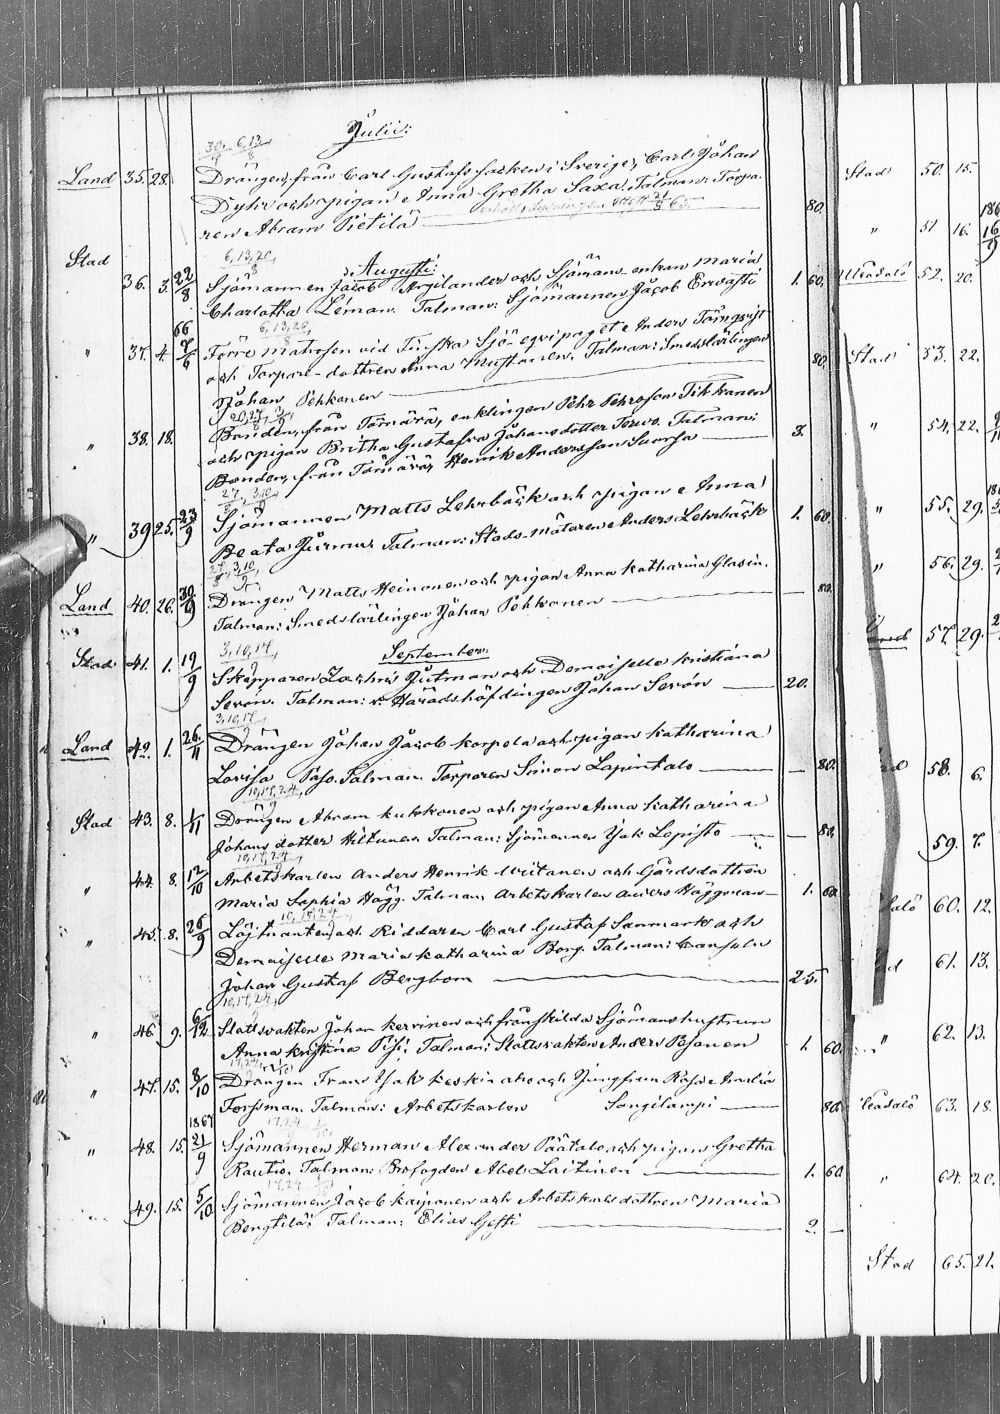 Julii:
30, 6, 13,
Land 35. 28. Drängen, från Carl Gustafs socken i Sverige, Carl Johan
Dyhr och pigan Anna Gretha Saxa. Talman: Torpa-
ren Abram Pietilä 80.
Stad
6, 13, 20,
Augusti:
36. 3. 22/8 Sjömannen Jacob Argilander och Sjömans enkan Maria
Charlotta Léman. Talman: Sjömannen Jacob Ervasti 1. 60.
66
6, 13, 20,
" 37. 4. 7/6 Förre Matrosen vid Finska Sjö-equipaget Anders Törnqvist
och Torpare-dottren Anna Mustonen. Talman: Smedslärlingen
Johan Pehkonen 80.
20, 27,
" 38. 18. Bonden, från Törnävä, enklingen Pehr Pehrsson Tikkanen
och pigan Britha Gustafva Johansdotter Torvo. Talman:
Bonden, från Törnävä, Henrik Andersson Suorsa 3.
27, 3, 10,
" 39 25. 23/9 Sjömannen Matts Lehrbäck och pigan Anna
Beata Jurmu. Talman: Stads-mätaren Anders Lehrbäck 1. 60.
27, 3, 10,
Land 40. 26. 30/9 Drängen Matts Heinonen och pigan Anna Katharina Glasin.
Talman: Smedslärlingen Johan Pehkonen 80.
3, 10, 17,
September:
Stad 41. 1. 19/9 Skepparen Zachris Jutman och Demoiselle Kristiana
Serón. Talman: v. Häradshöfdingen Johan Serón 20.
3, 10, 17,
Land 42. 1. 26/11 Drängen Johan Jacob Korpela och pigan Katharina
Lovisa Paso. Talman: Torparen Simon Lapintalo 80.
10, 17, 24,
Stad 43. 8. 1/11 Drängen Abram Kukkonen och pigan Anna Katharina
Johans dotter Hiltunen Talman: Sjömannen Isak Lopisto 80.
10, 17, 24,
" 44. 8. 12/10 Arbetskarlen Anders Henrik Miitanen och Gårdsdottren
Maria Sophia Hägg. Talman Arbetskarlen Anders Häggman 1. 60.
10, 17, 24,
" 45. 8. 26/9 Löjtnanten och Riddaren Carl Gustaf Sanmark och
Demoiselle Maria Katharina Borg. Talman: Consuln
Johan Gustaf Bergbom 25.
10, 17, 24,
" 46. 9. 6/12 Slottsvakten Johan Kervinen och frånskilda Sjömanshustrun
Anna Kristina Pisi. Talman: Slottsvakten Anders Pyonen 1. 60.
17, 24,
" 47. 15. 8/10 Drängen Frans Isak Keskiaho och Jungfrun Rosa Amalia
Forsman. Talman: Arbetskarlen Sangilampi 80.
1867
17, 24,
" 48. 15. 21/9 Sjömannen Herman Alexander Päätalo och pigan Gretha
Rautio. Talman: Profogden Abel Laitinen 1. 60
17, 24,
49. 15. 5/10 Sjömannen Jacob Kaiponen och Arbetskarlsdottren Maria
Bengtilä. Talman: Elias Gesti 2. —
Stad 50. 15.
" 51 16. 16/9
Uleåsalo 52. 20.
Stad 53. 22.
" 54. 22.
" 55. 29.
" 56. 29.
57. 29.
58. 6.
59. 7.
60. 12.
61. 13.
" 62. 13.
63. 18.
" 64. 20.
Stad 65. 21.